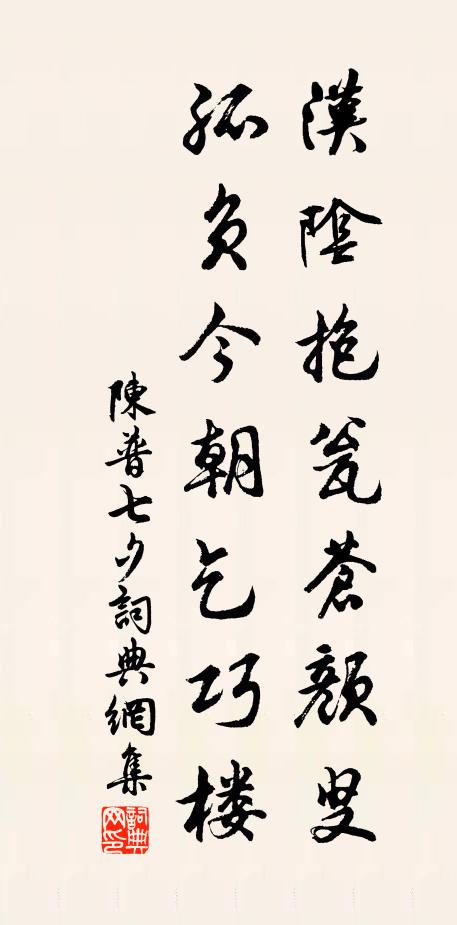 漢陰抱瓮蒼顏叟
孤負今朝乞巧楼
陳普七夕詞典網集
詞典网印